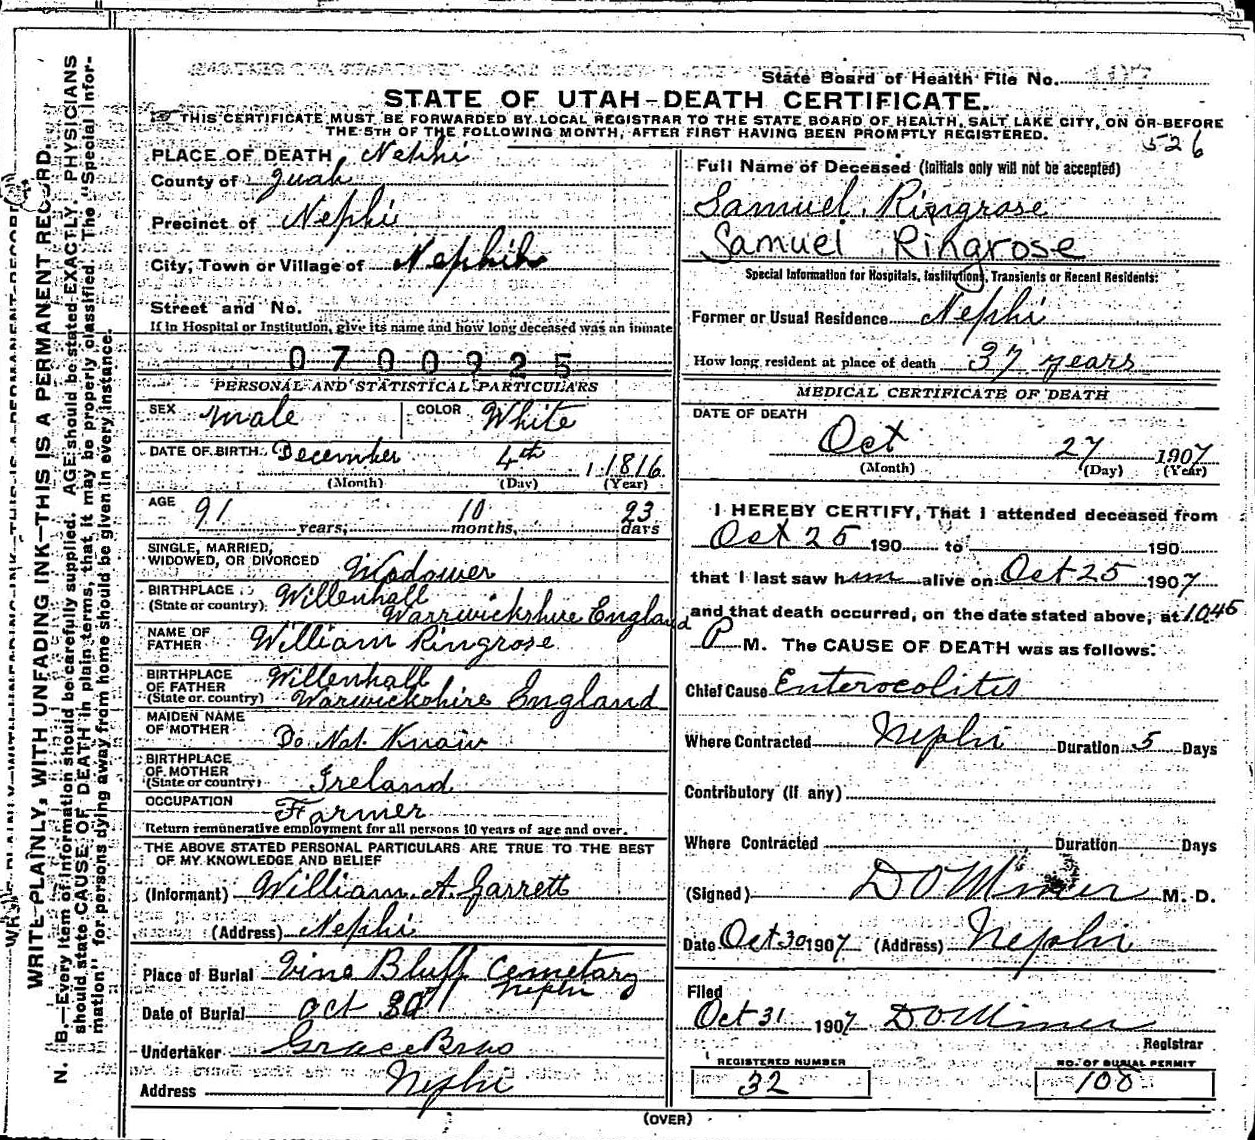 State Board of Health File No.
STATE OF UTAH-DEATH CERTIFICATE.
THIS CERTIFICATE MUST BE FORWARDED BY LOCAL REGISTRAR TO THE STATE BOARD OF HEALTH, SALT LAKE CITY, ON OR BEFORE
THE 5TH OF THE FOLLOWING MONTH, AFTER FIRST HAVING BEEN PROMPTLY REGISTERED.
526
PLACE OF DEATH Nephi
County of Juab
Precinct of Nephi
City, Town or Village of Nephi
Street and No.
If in Hospital or Institution, give its name and how long deceased was an inmate
0700925
PERSONAL AND STATISTICAL PARTICULARS
SEX male COLOR White
DATE OF BIRTH December 4th 1816
(Month) (Day) (Year)
AGE 91 years, 10 months, 23 days
SINGLE, MARRIED,
WIDOWED, OR DIVORCED Widower
BIRTHPLACE Willenhall
(State or country) Warwickshire England
NAME OF
FATHER William Ringrose
BIRTHPLACE
OF FATHER Willenhall
(State or country) Warwickshire England
MAIDEN NAME
OF MOTHER Do Not Know
BIRTHPLACE
OF MOTHER
(State or country) Ireland
OCCUPATION Farmer
Return remunerative employment for all persons 10 years of age and over.
THE ABOVE STATED PERSONAL PARTICULARS ARE TRUE TO THE BEST
OF MY KNOWLEDGE AND BELIEF
(Informant) William A. Garrett
(Address) Nephi
Place of Burial Vine Bluff Cemetary
Nephi
Date of Burial Oct 30
Undertaker Grace Bros
Address Nephi
Full Name of Deceased (Initials only will not be accepted)
Samuel Ringrose
Samuel Ringrose
Special Information for Hospitals, Institutions, Transients or Recent Residents:
Former or Usual Residence Nephi
How long resident at place of death 37 years
MEDICAL CERTIFICATE OF DEATH
DATE OF DEATH
Oct 27 1907
(Month) (Day) (Year)
I HEREBY CERTIFY, That I attended deceased from
Oct 25 190 to 190
that I last saw him alive on Oct 25 1907
and that death occurred, on the date stated above, at 10.45
P M. The CAUSE OF DEATH was as follows:
Chief Cause Enterocolitis
Where Contracted Nephi Duration 5 Days
Contributory (if any)
Where Contracted Duration Days
(Signed) D O Miner M. D.
Date Oct 30 1907 (Address) Nephi
Filed
Oct 31 1907 D O Miner
Registrar
REGISTERED NUMBER
32
NO. OF BURIAL PERMIT
108
(OVER)
WRITE PLAINLY, WITH UNFADING INK—THIS IS A PERMANENT RECORD.
N. B.—Every item of information should be carefully supplied. AGE should be stated EXACTLY. PHYSICIANS
should state CAUSE OF DEATH in plain terms, that it may be properly classified. The "Special Infor-
mation" for persons dying away from home should be given in every instance.